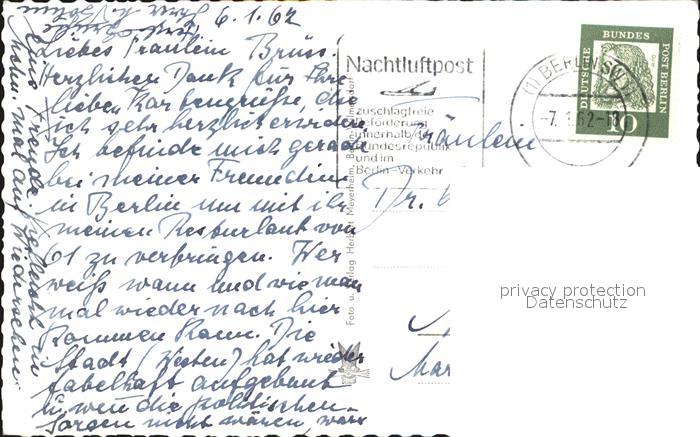 6.1.62
Liebes Fräulein Brüss!
Herzlichen Dank für Ihre
lieben Kartengrüße, die
ich sehr herzlich erwidere.
Ich befinde mich gerade
bei meiner Freundin
in Berlin um mit ihr
meinen Resturlaub von
61 zu verbringen. Wer
weiß wann und wie man
mal wieder nach hier
kommen kann. Die
Stadt (Westen) hat wieder
fabelhaft aufgebaut
u. wenn die politischen
Sorgen nicht wären, wär
eine Freude. Vielleicht ein
mal auf Wiedersehen.
Nachtluftpost
zuschlagfreie
Beförderung
innerhalb der
Bundesrepublik
und im
Berlin-Verkehr
(1) BERLIN SW
-7.1.62-18
DEUTSCHE BUNDES POST BERLIN
10
Fräulein
Dr.
Mar
Foto u. Verlag Herbert Meyerheim, Berlin-Wilmersdorf
privacy protection
Datenschutz